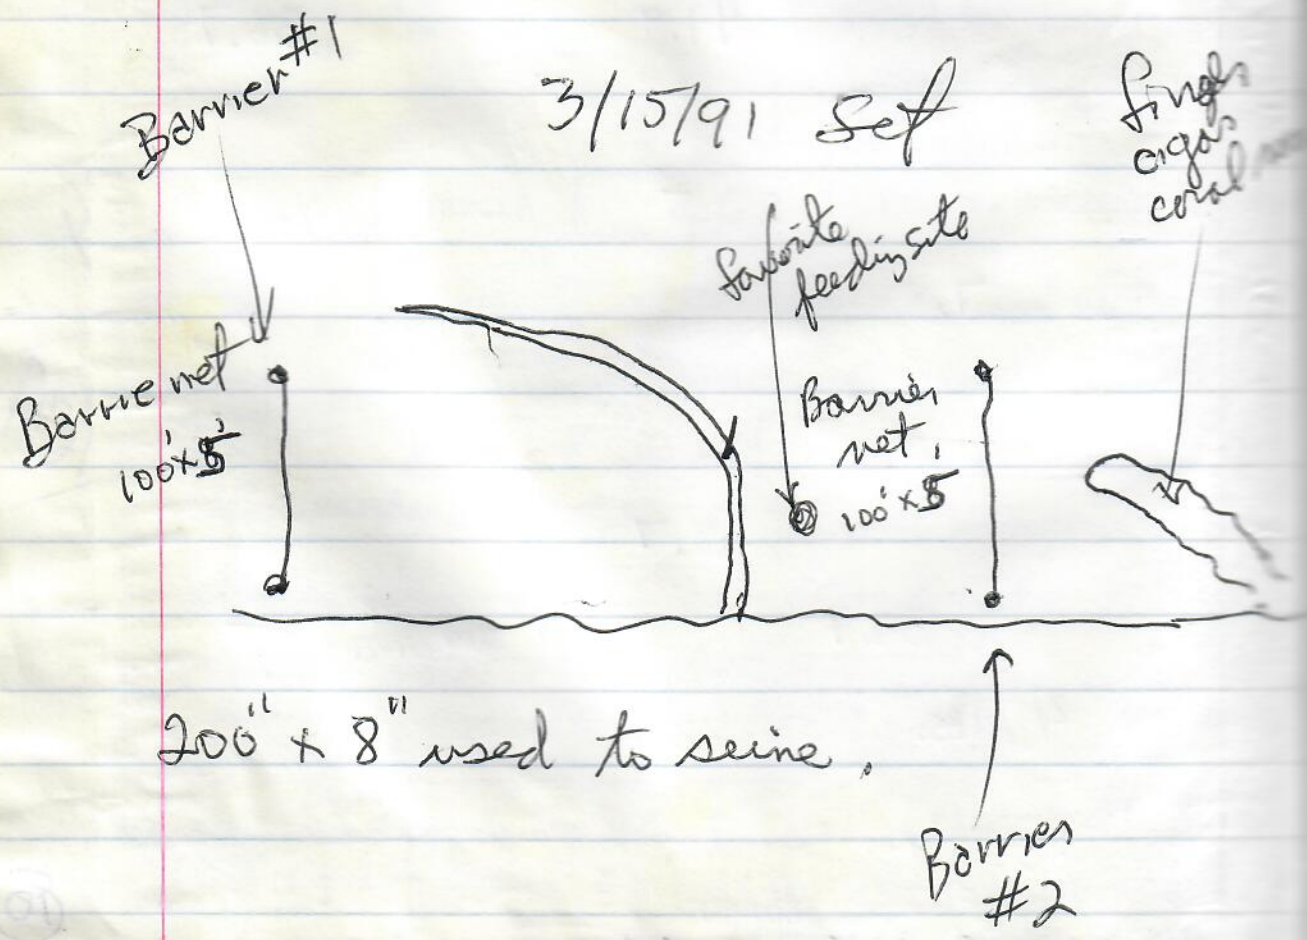 Barrier #1
3/15/91 Set
finger
coral
favorite
feeding site
Barrie net
100'x8'
Barrier
net,
100'x8
200" x 8" used to seine.
Barrier
#2